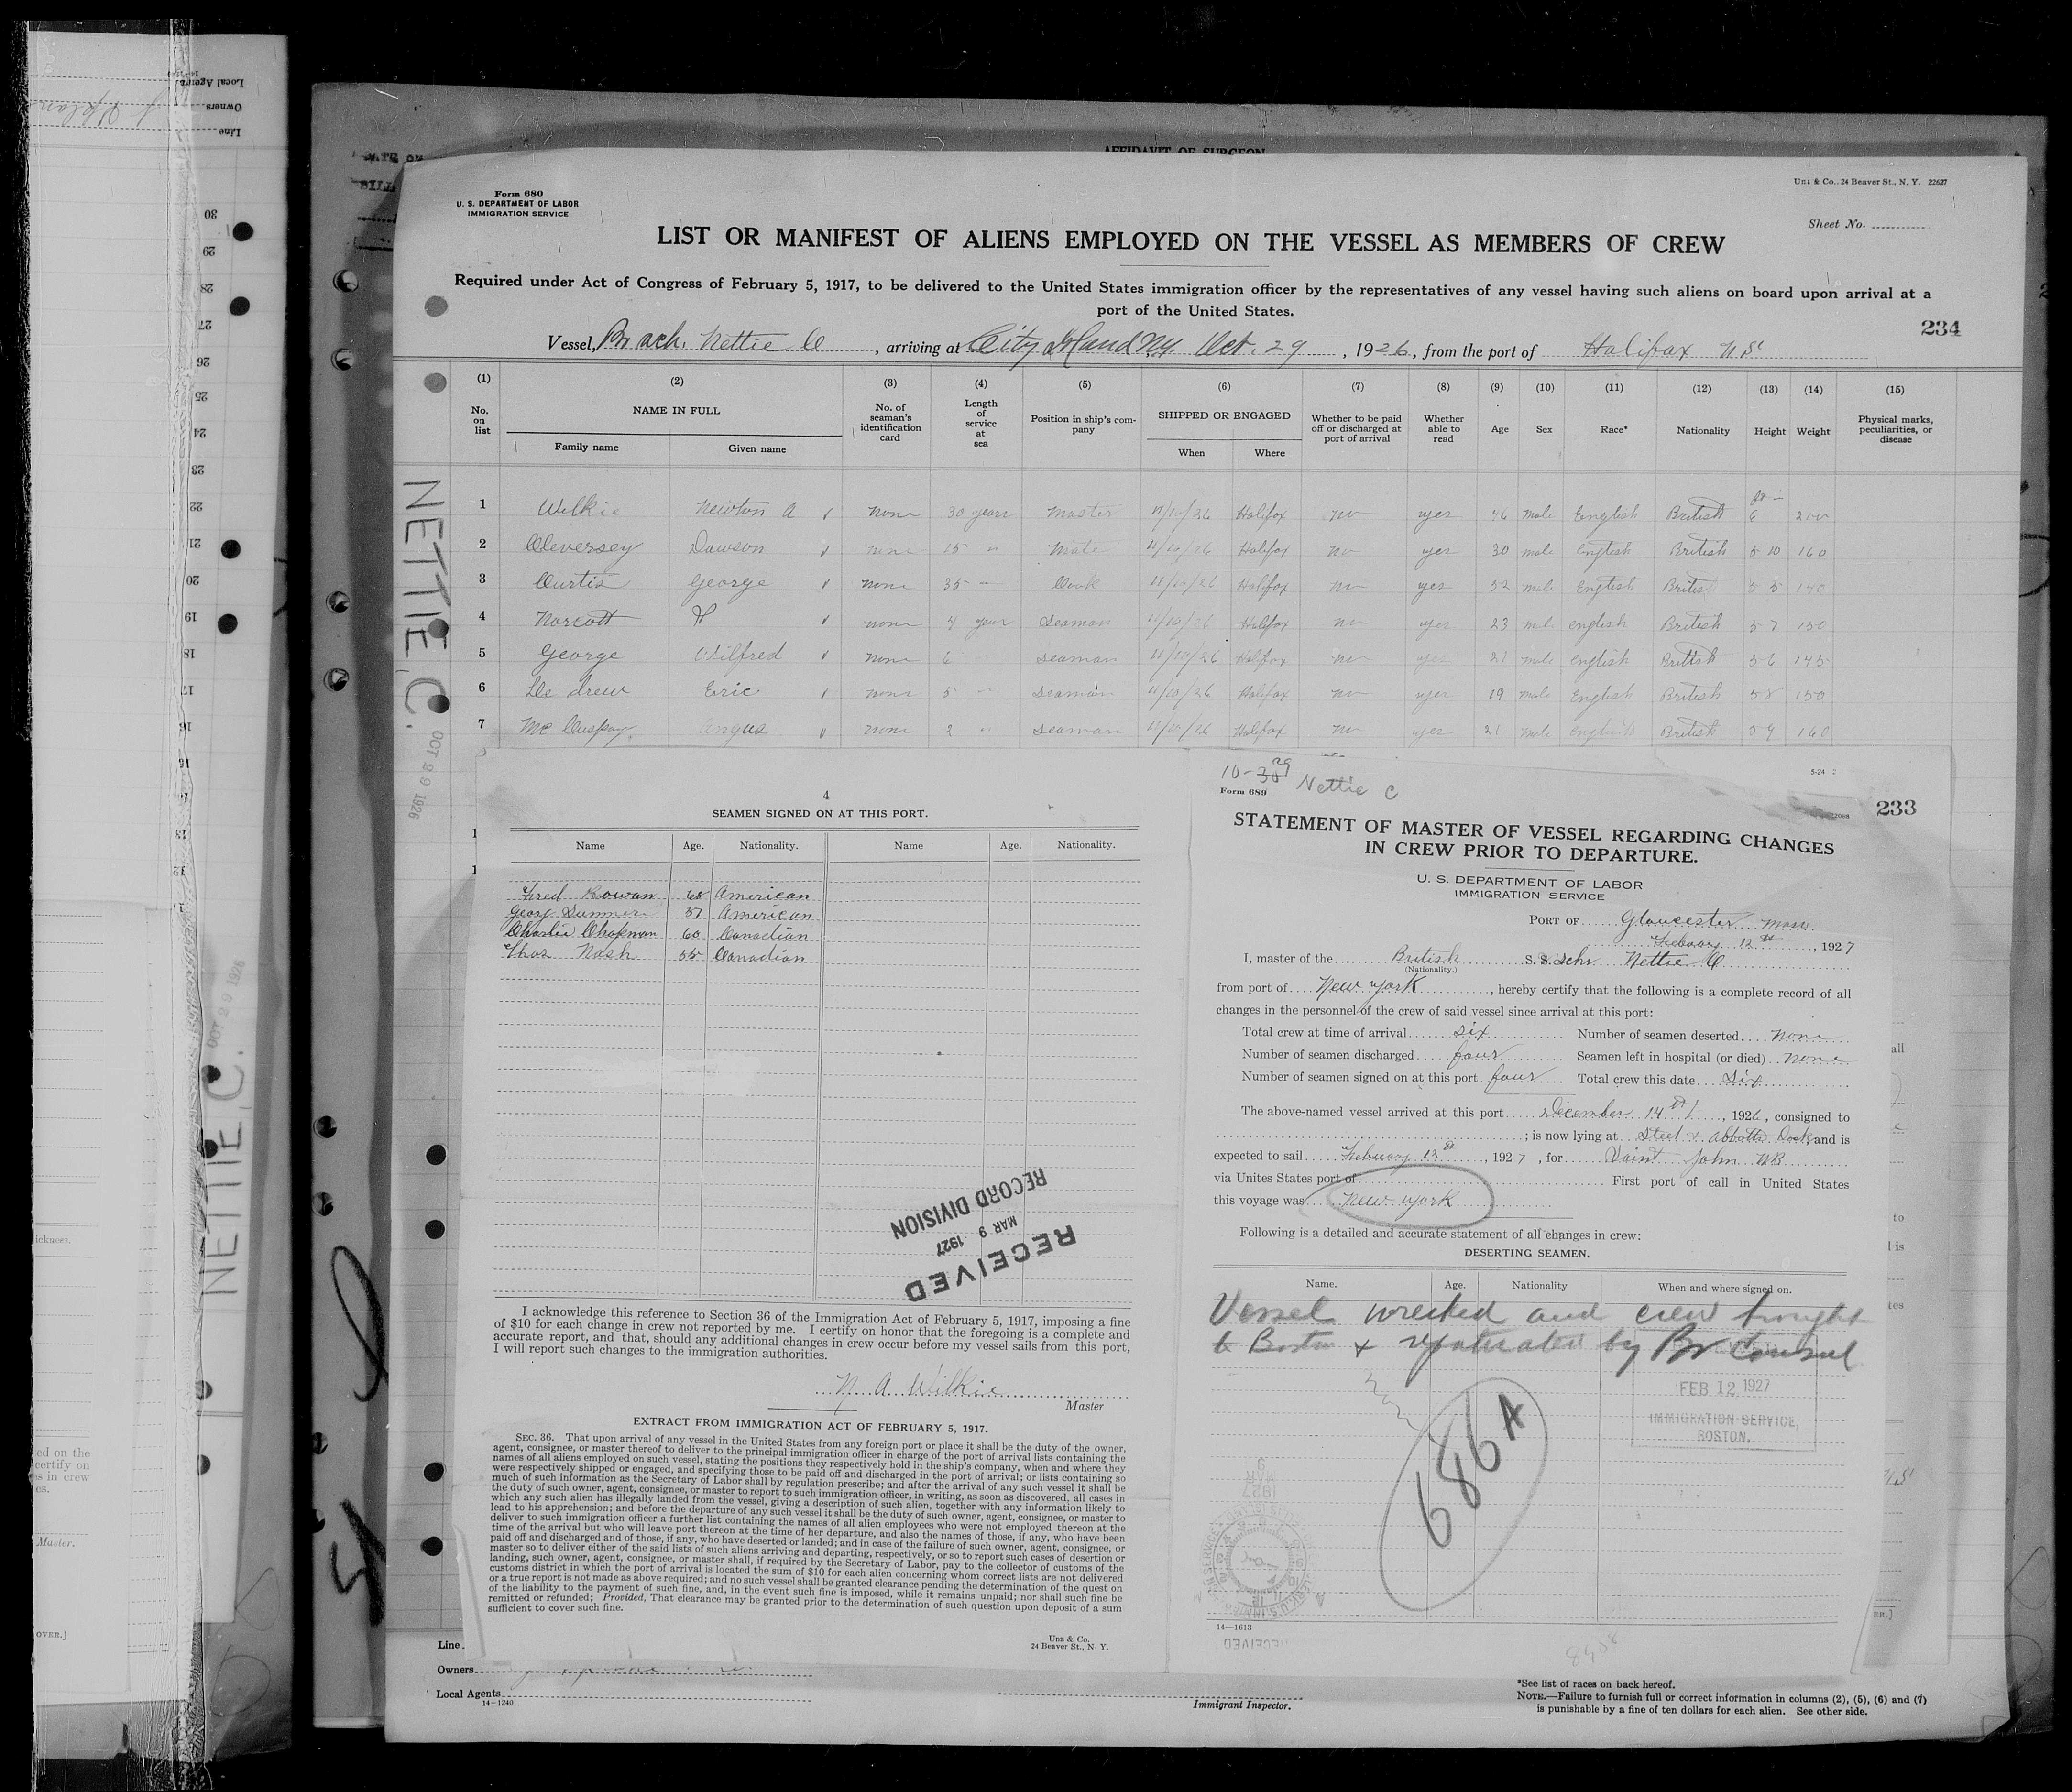 Form 680
U. S. DEPARTMENT OF LABOR
IMMIGRATION SERVICE
Unz & Co., 24 Beaver St., N. Y. 22627
Sheet No.
LIST OR MANIFEST OF ALIENS EMPLOYED ON THE VESSEL AS MEMBERS OF CREW
Required under Act of Congress of February 5, 1917, to be delivered to the United States immigration officer by the representatives of any vessel having such aliens on board upon arrival at a
port of the United States.
234
Vessel, Br sch. Nettie C, arriving at City Island NY. Oct. 29, 1926, from the port of Halifax N S
(1) (2) (3) (4) (5) (6) (7) (8) (9) (10) (11) (12) (13) (14) (15)
No. on list NAME IN FULL Family name Given name No. of seaman's identification card Length of service at sea Position in ship's company SHIPPED OR ENGAGED When Where Whether to be paid off or discharged at port of arrival Whether able to read Age Sex Race* Nationality Height Weight Physical marks, peculiarities, or disease
1 Wilkie Newton A none 30 years Master Halifax no yes 46 male English British 6 200
2 Cleversey Dawson none 15 " Mate Halifax no yes 30 male English British 5 10 160
3 Curtis George none 35 Cook Halifax no yes 52 male English British 5 5 140
4 Norcott none 4 year Seaman Halifax no yes 23 male English British 5 7 150
5 George Wilfred none 6 Seaman Halifax no yes 21 male English British 5 6 145
6 Le drew Eric none 5 " Seaman Halifax no yes 19 male English British 5 8 150
7 Mc Angus none 2 " Seaman Halifax no yes 21 male English British 5 9 160
NETTIE, C.
OCT 29 1926
4
SEAMEN SIGNED ON AT THIS PORT.
Name Age. Nationality. Name Age. Nationality.
Fred Rowan American
Georg 57 American
Charlie Chapman 60 Canadian
Thos Nash 55 Canadian
RECEIVED
MAR 9 1927
RECORD DIVISION
I acknowledge this reference to Section 36 of the Immigration Act of February 5, 1917, imposing a fine
of $10 for each change in crew not reported by me. I certify on honor that the foregoing is a complete and
accurate report, and that, should any additional changes in crew occur before my vessel sails from this port,
I will report such changes to the immigration authorities.
N. A. Wilkie
Master
EXTRACT FROM IMMIGRATION ACT OF FEBRUARY 5, 1917.
SEC. 36. That upon arrival of any vessel in the United States from any foreign port or place it shall be the duty of the owner,
agent, consignee, or master thereof to deliver to the principal immigration officer in charge of the port of arrival lists containing the
names of all aliens employed on such vessel, stating the positions they respectively hold in the ship's company, when and where they
were respectively shipped or engaged, and specifying those to be paid off and discharged in the port of arrival; or lists containing so
much of such information as the Secretary of Labor shall by regulation prescribe; and after the arrival of any such vessel it shall be
the duty of such owner, agent, consignee, or master to report to such immigration officer, in writing, as soon as discovered, all cases in
which any such alien has illegally landed from the vessel, giving a description of such alien, together with any information likely to
lead to his apprehension; and before the departure of any such vessel it shall be the duty of such owner, agent, consignee, or master to
deliver to such immigration officer a further list containing the names of all alien employees who were not employed thereon at the
time of the arrival but who will leave port thereon at the time of her departure, and also the names of those, if any, who have been
paid off and discharged and of those, if any, who have deserted or landed; and in case of the failure of such owner, agent, consignee, or
master so to deliver either of the said lists of such aliens arriving and departing, respectively, or so to report such cases of desertion or
landing, such owner, agent, consignee, or master shall, if required by the Secretary of Labor, pay to the collector of customs of the
customs district in which the port of arrival is located the sum of $10 for each alien concerning whom correct lists are not delivered
or a true report is not made as above required; and no such vessel shall be granted clearance pending the determination of the quest on
of the liability to the payment of such fine, and, in the event such fine is imposed, while it remains unpaid; nor shall such fine be
remitted or refunded; Provided, That clearance may be granted prior to the determination of such question upon deposit of a sum
sufficient to cover such fine.
Unz & Co.
24 Beaver St., N. Y.
10-30 29 Nettie C
Form 689
5-24
233
STATEMENT OF MASTER OF VESSEL REGARDING CHANGES
IN CREW PRIOR TO DEPARTURE.
U. S. DEPARTMENT OF LABOR
IMMIGRATION SERVICE
PORT OF Gloucester Mass.
Febuary 12th, 1927
I, master of the British S. S. Schr Nettie C
(Nationality.)
from port of New York, hereby certify that the following is a complete record of all
changes in the personnel of the crew of said vessel since arrival at this port:
Total crew at time of arrival six Number of seamen deserted none
Number of seamen discharged four Seamen left in hospital (or died) none
Number of seamen signed on at this port four Total crew this date Six
The above-named vessel arrived at this port December 14th, 1926, consigned to
; is now lying at Steel & Abbotts Dock and is
expected to sail Febuary 12th, 1927, for Saint John NB
via Unites States port of First port of call in United States
this voyage was New York
Following is a detailed and accurate statement of all changes in crew:
DESERTING SEAMEN.
Name. Age. Nationality When and where signed on.
Vessel wrecked and crew brought
to Boston & repatriated by Br Consul
FEB 12 1927
IMMIGRATION SERVICE,
BOSTON.
686 A
14—1613
RECEIVED
Line
Owners
Local Agents
14—1240
Immigrant Inspector.
*See list of races on back hereof.
NOTE.—Failure to furnish full or correct information in columns (2), (5), (6) and (7)
is punishable by a fine of ten dollars for each alien. See other side.
AFFIDAVIT OF SURGEON
Local Agents
Owners
Line
30
29
28
27
26
25
24
23
22
21
20
19
18
17
16
NETTIE, C.
OCT 29 1926
Master.